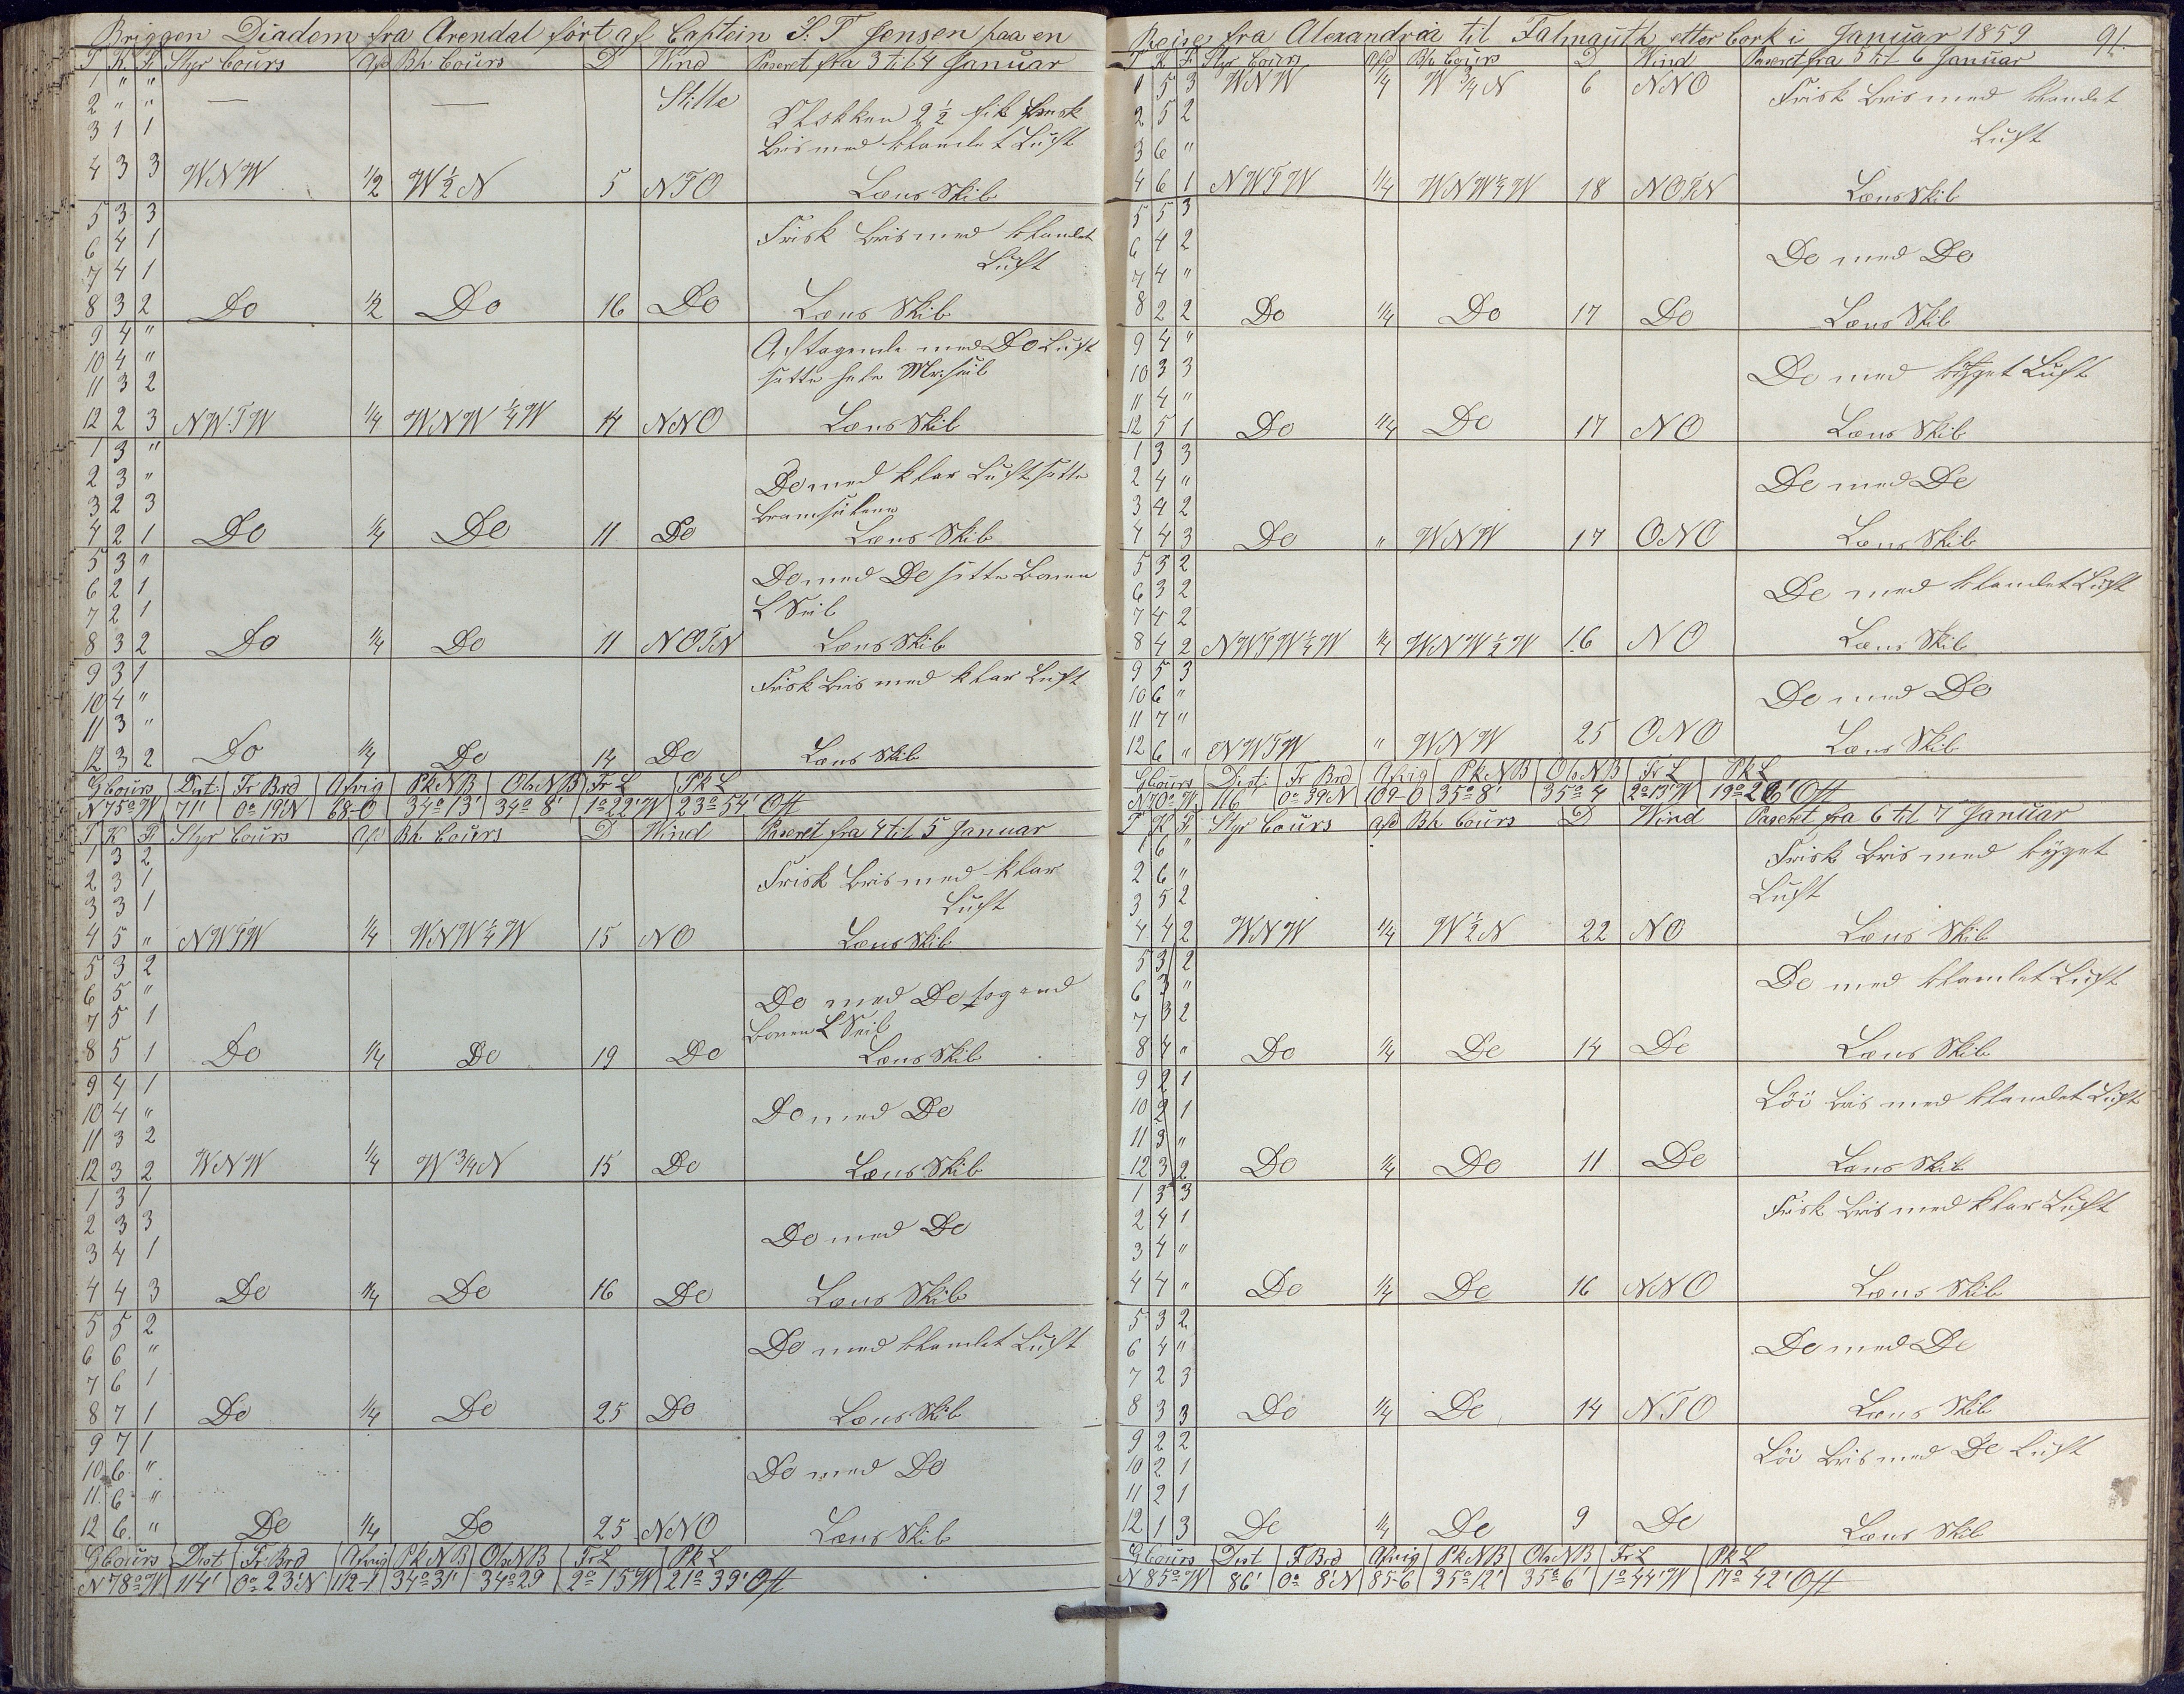 Briggen Diadem fra Arendal ført af Captein S. T Jensen paa en
T K F Styr Cours Afd Bh Cours D Wind Passeret fra 3 til 4 Januar
1 " "
2 " " — — Stille
3 1 1 Klokken 2 ½ fik frisk
Bris med blandet Luft
4 3 3 WNW ½ W½N 5 NTO Læns Skib
5 3 3
6 4 1 Frisk Bris med blandet
7 4 1 Luft
8 3 2 Do ½ Do 16 Do Læns Skib
9 4 " Aftagende med Do Luft
10 4 " sætte hele
11 3 2
12 2 3 NWTW ¼ WNW¼W 14 NNO Læns Skib
1 3 "
2 3 " Do med klar Luft satte
3 2 3 Bramseilene
4 2 1 Do ¼ Do 11 Do Læns Skib
5 3 "
6 2 1 Do med Do sætte Boven
7 2 1 L Seil
8 3 2 Do ¼ Do 11 NOTN Læns Skib
9 3 1 Frisk Bris med klar Luft
10 4 "
11 3 "
12 3 2 Do ¼ Do 14 Do Læns Skib
G Cours Dist: Fr Brd Afvig PkNB ObsNB Fr L Pk L
N75°W 71' 0° 19'N 68-0 34° 13' 34° 8' 1° 22'W 23° 54' Øst
T K F Styr Cours Afd Bh Cours D Wind Passeret fra 4 til 5 Januar
1 3 2
2 3 1 Frisk Bris med klar
3 3 1 Luft
4 5 " NWTW ¼ WNW¼W 15 NO Læns Skib
5 3 2
6 5 " Do med Do
7 5 1 Boven L Seil
8 5 1 Do ¼ Do 19 Do Læns Skib
9 4 1
10 4 " Do med Do
11 3 2
12 3 2 WNW ¼ W¾N 15 Do Læns Skib
1 3 1
2 3 3 Do med Do
3 4 1
4 4 3 Do ¼ Do 16 Do Læns Skib
5 5 2
6 6 " Do med blandet Luft
7 6 1
8 7 1 Do ¼ Do 25 Do Læns Skib
9 7 1
10 6 " Do med Do
11 6 "
12 6 " Do ¼ Do 25 NNO Læns Skib
G Cours Dist Fr Brd Afvig PkNB ObsNB Fr L Pk L
N78°W 114' 0° 23'N 112-1 34° 31' 34° 29 2° 15'W 21° 39' Øst
Reise fra Alexandria til Falmauth etter Cork i Januar 1859 91.
T K F Styr Cours Afd Bh Cours D Wind Passeret fra 5 til 6 Januar
1 5 3 WNW ¼ W¾N 6 NNO Frisk Bris med blandet
2 5 2 Luft
3 6 "
4 6 1 NWTW ¼ WNW¼W 18 NOTN Læns Skib
5 5 3
6 4 2 Do med Do
7 4 "
8 2 2 Do ¼ Do 17 Do Læns Skib
9 4 "
10 3 3 Do med bÿget Luft
11 4 "
12 5 1 Do ¼ Do 17 NO Læns Skib
1 3 3
2 4 " Do med Do
3 4 2
4 4 3 Do " WNW 17 ONO Læns Skib
5 3 2
6 3 2 Do med blandet Luft
7 4 2
8 4 2 NWTW¼W ¼ WNW½W 16 NO Læns Skib
9 5 3
10 6 " Do med Do
11 7 "
12 6 " NWTW " WNW 25 ONO Læns Skib
G Cours Dist: Fr Brd Afvig PkNB ObsNB Fr L Pk L
N70°W 116 0° 39'N 109-0 35° 8' 35° 4 2° 13'W 19° 26' Øst
T K F Styr Cours Afd Bh Cours D Wind Passeret fra 6 til 7 Januar
1 6 " Frisk Bris med bÿget
2 6 " Luft
3 5 2
4 4 2 WNW ¼ W½N 22 NO Læns Skib
5 3 2
6 3 " Do med blandet Luft
7 3 2
8 4 " Do ¼ Do 14 Do Læns Skib
9 2 1
10 2 1 Löi Bris med blandet Luft
11 3 "
12 3 2 Do ¼ Do 11 Do Læns Skib
1 3 3
2 4 1 Frisk Bris med klar Luft
3 4 "
4 4 " Do ¼ Do 16 NNO Læns Skib
5 3 2
6 4 " Do med Do
7 2 3
8 3 3 Do ¼ Do 14 NTO Læns Skib
9 2 2
10 2 1 Löi Bris med Do Luft
11 2 1
12 1 3 Do ¼ Do 9 Do Læns Skib
G Cours Dist F Brd Afvig PkNB ObsNB Fr L Pk L
N85°W 86' 0° 8'N 85-6 35° 12' 35° 6' 1° 44'W 17° 42' Øst